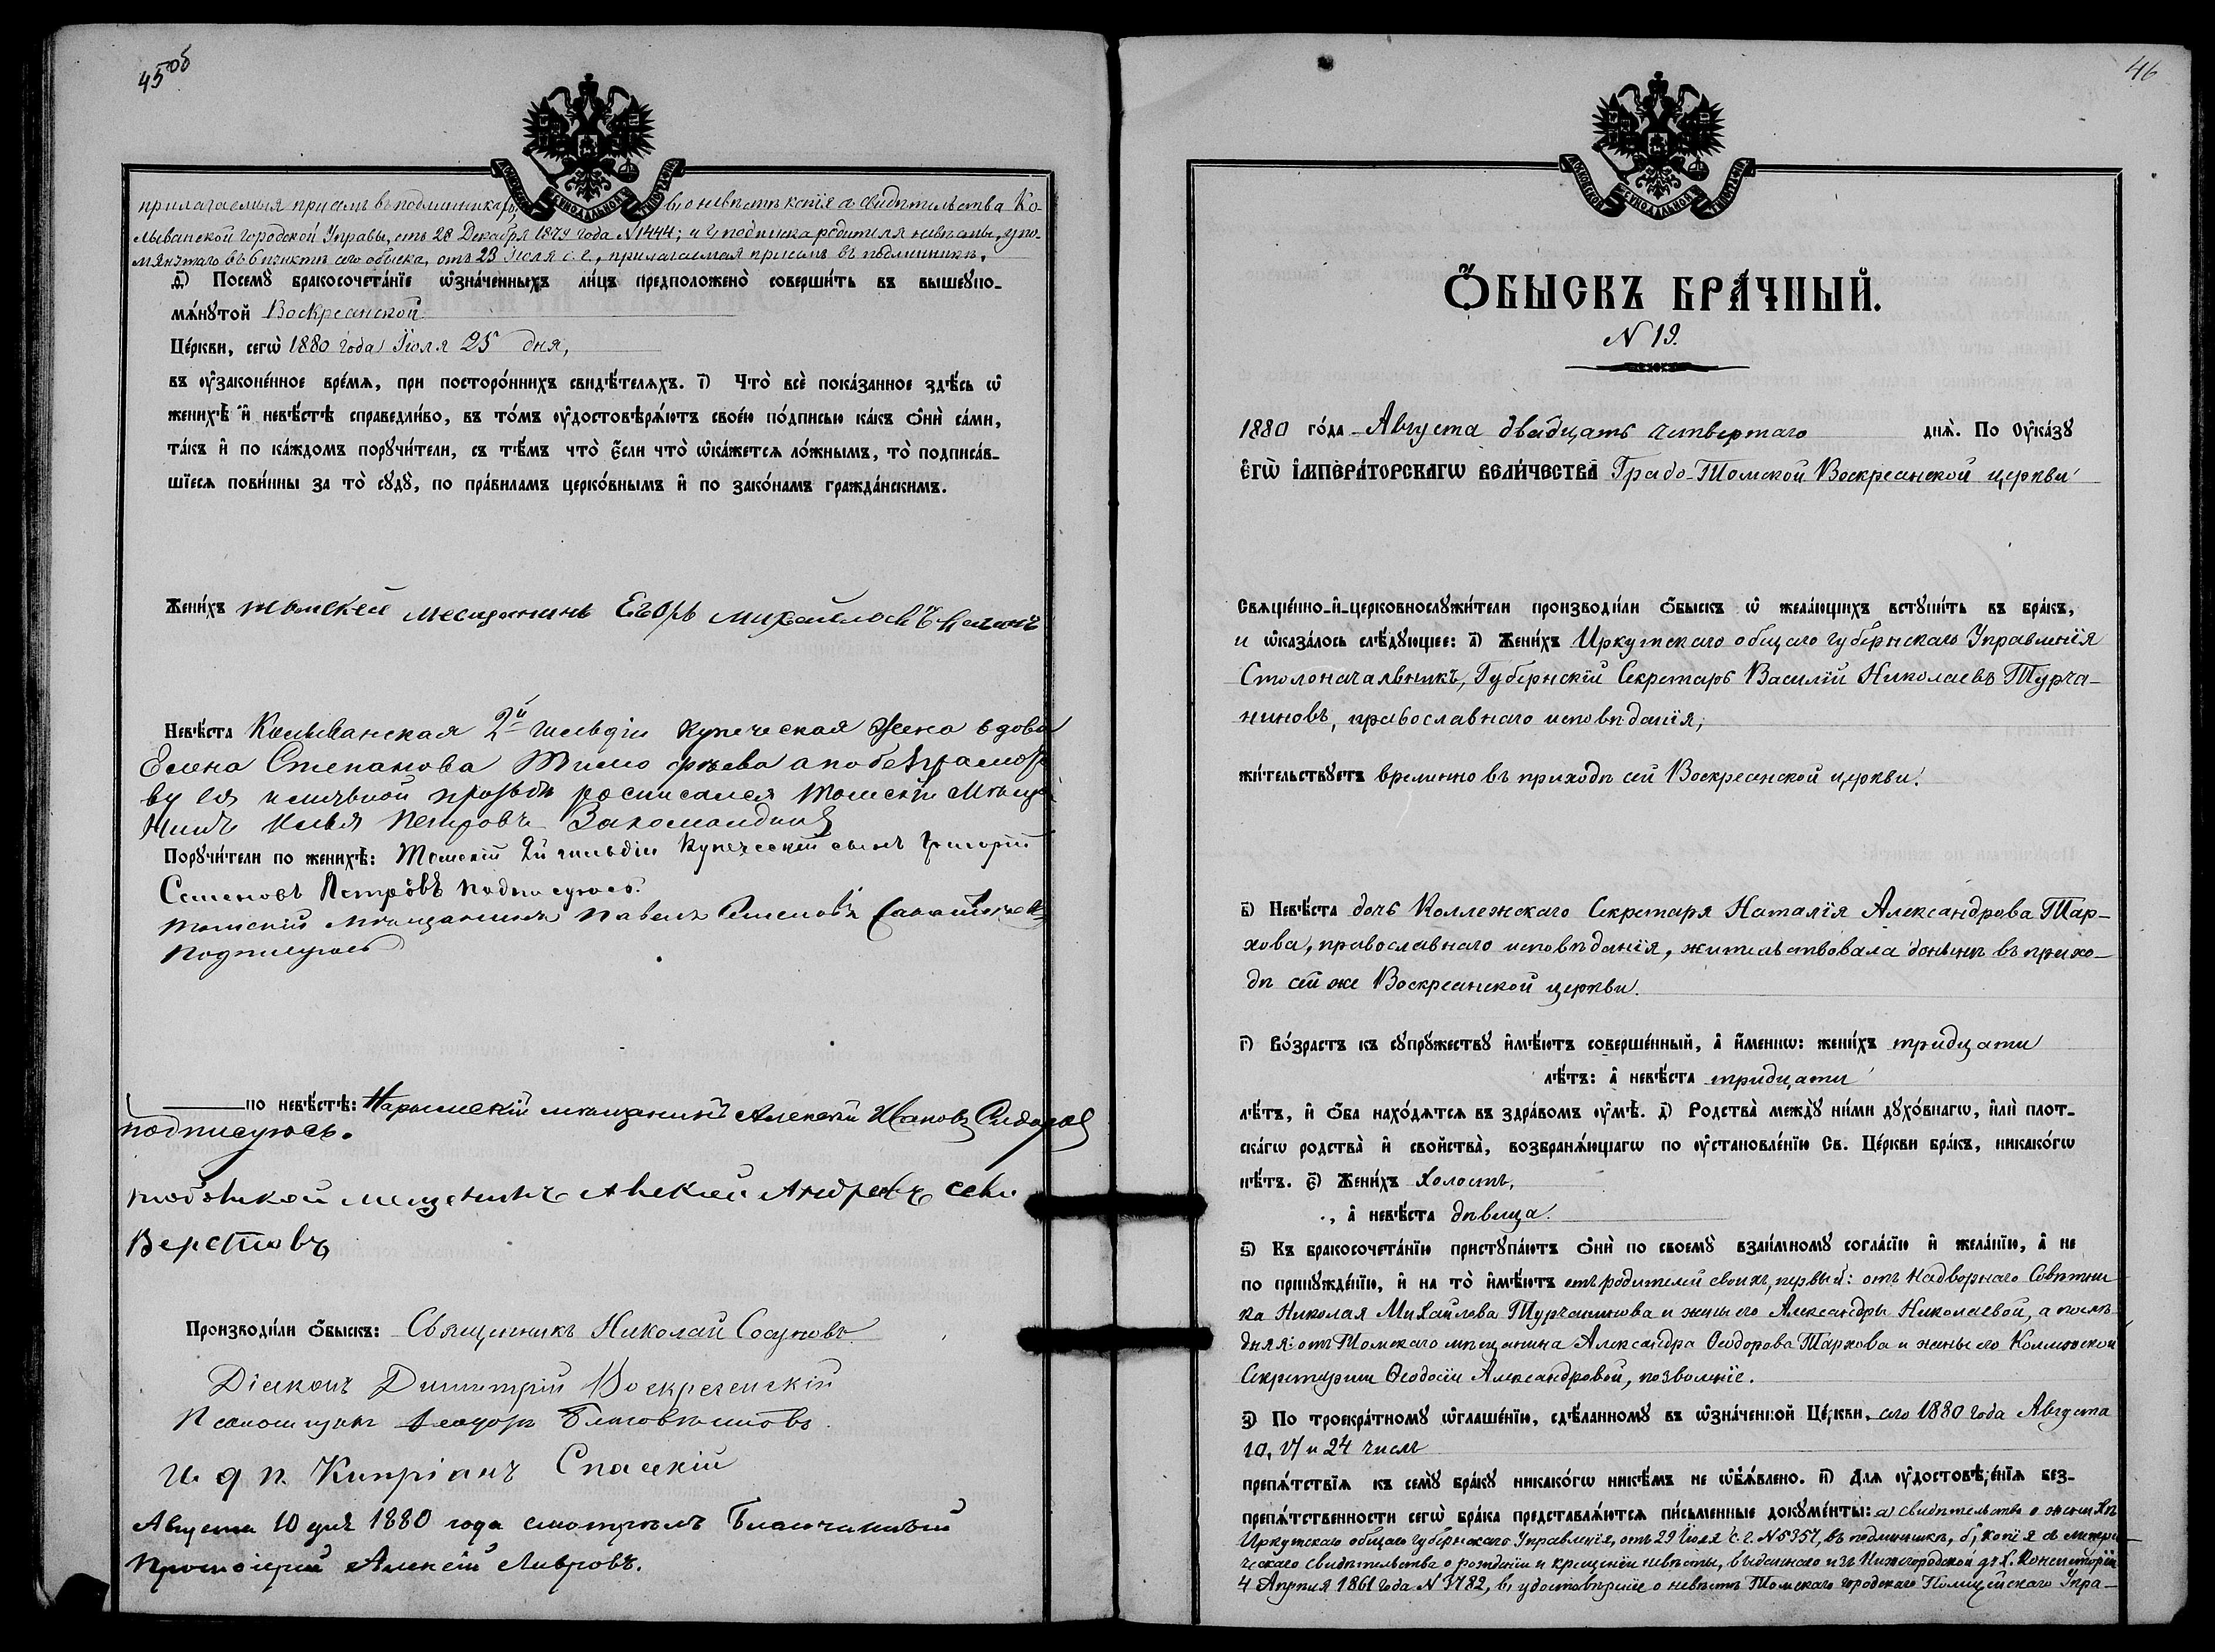 45об
прилагаемыя при семъ въ подлинникахъ; в, о невѣстѣ копія съ свидѣтельства Ко-
лыванской Городской Управы, отъ 28 Декабря 1879 года N 1444; и г, подписка родителя невѣсты, упо-
мянутаго въ 6 пунктѣ сего обыска, отъ 23 Іюля с. г., прилагаемая при семъ въ подлинникѣ.
ѳ҃) Посемꙋ̀ бракосочета́нїе ѡ҆зна́ченныхъ ли́цъ предположено̀ соверши́ть въ вышеꙋпо-
мѧ́нꙋтой Воскресенской
Це́ркви, сегѡ̀ 1880 года Іюля 25 дня,
въ ᲂу҆зако́ненное вре́мѧ, при посторо́ннихъ свидѣ́телѧхъ. і҃) Что̀ всѐ пока́занное здѣ́сь ѡ҆
женихѣ̀ и҆ невѣ́стѣ справедли́во, въ то́мъ ᲂу҆достовѣрѧ́ютъ свое́ю по́дписью ка́къ ѻ҆нѝ са́ми,
та́къ и҆ по ка́ждомъ порꙋчи́тели, съ тѣ́мъ что̀ є҆́сли что̀ ѡ҆ка́жетсѧ ло́жнымъ, то̀ подписа́в-
шїесѧ пови́нны за то̀ сꙋдꙋ̀, по пра́виламъ церко́внымъ и҆ по зако́намъ гражда́нскимъ.
Жени́хъ томской месчанинъ Егоръ Михайловъ
Невѣ́ста Колыванская 2й гильдіи купеческая жена вдова
Елена Степанова а по безграмотс
ву ея и личной прозьбѣ росписался томскій мѣща
нинъ Илья Петровъ
Порꙋчи́тели по женихѣ̀: Томскій 2й гильдіи купеческій сынъ Григорій
Семеновъ Петровъ подписуюсь.
томский мѣщанинъ Павелъ Семеновъ
подписуюсь
по невѣ́стѣ: Нарымскій мѣщанинъ Алексѣй Ивановъ Сидоровъ
подписуюсь.
мещенинъ Алексеи Андреевъ
Верстовъ
Производи́ли ѻ҆́быскъ: Священникъ Николай Сосуновъ
Діаконъ Димитрій Воскресенскій
Псаломщикъ Ѳеодоръ Благовѣщенскій
И. д. п. Кипріанъ Спасскій
Августа 10 дня 1880 года смотрѣлъ Благочинный
Протоіерей Алексій Лавровъ.
46
Ѻ҆́БЫСКЪ БРА́ЧНЫЙ.
N 19.
1880 го́да Августа двадцать четвертаго днѧ̀. По ᲂу҆ка́зꙋ
Є҆ГѠ̀ І҆МПЕРА́ТОРСКАГѠ ВЕЛИ́ЧЕСТВА Градо-Томской Воскресенской церкви
Свѧще́нно-и҆-церковнослꙋжи́тели производи́ли ѻ҆́быскъ ѡ҆ жела́ющихъ встꙋпи́ть въ бра́къ,
и ѡ҆каза́лось слѣ́дꙋющее: а҃) Жени́хъ Иркутскаго общаго губернскаго Управленія
Столоначальникъ, Губернскій Секретарь Василій Николаевъ Турча-
ниновъ, православнаго исповѣданія,
жи́тельствꙋетъ временно въ приходѣ сей Воскресенской церкви.
в҃) Невѣ́ста дочь Коллежскаго Секретаря Наталія Александрова Тар-
хова, православнаго исповѣданія, жительствовала донынѣ въ прихо-
дѣ сей же Воскресенской церкви.
г҃) Во́зрастъ къ сꙋпрꙋ́жествꙋ и҆мѣ́ютъ соверше́нный, а҆ и҆́меннѡ: жени́хъ тридцати
лѣ́тъ: а҆ невѣ́ста тридцати
лѣ́тъ, и҆ ѻ҆́ба нахо́дѧтсѧ въ здра́вомъ ᲂу҆мѣ̀. д҃) Родства̀ междꙋ̀ ни́ми дꙋхо́внагѡ, и҆лѝ плот-
ска́гѡ родства̀ и҆ свойства̀, возбранѧ́ющагѡ по ᲂу҆становле́нїю Св. Це́ркви бра́къ, никако́гѡ
нѣ́тъ. є҃) Жени́хъ холостъ,
., а҆ невѣ́ста дѣвица.
ѕ҃) Къ бракосочета́нїю пристꙋпа́ютъ ѻ҆нѝ по своемꙋ̀ взаи́мномꙋ согла́сїю и҆ жела́нїю, а҆ не
по принꙋжде́нїю, и҆ на то̀ и҆мѣ́ютъ отъ родителей своихъ, первый: отъ Надворнаго Совѣтни
ка Николая Михайлова Турчанинова и жены его Александры Николаевой, а послѣ-
дняя: отъ Томскаго мѣщанина Александра Ѳеодорова Тархова и жены его Коллежской
Секретарши Ѳеодосіи Александровой, позволеніе.
з҃) По троекра́тномꙋ ѡ҆глаше́нїю, сдѣ́ланномꙋ въ ѡ҆зна́ченной Це́ркви, сего 1880 года Августа
10, 17 и 24 числъ
препѧ́тствїѧ къ семꙋ̀ бра́кꙋ никако́гѡ никѣ́мъ не ѡ҆б̾ѧ́влено. и҃) Длѧ ᲂу҆достовѣре́нїѧ без-
препѧ́тственности сегѡ̀ бра́ка представлѧ́ютсѧ пи́сьменные докꙋме́нты: а) свидѣтельство о женихѣ
Иркутскаго общаго Губернскаго Управленія, отъ 29 Іюля с. г. N 5357, въ подлинникѣ, б, копія съ метри-
ческаго свидѣтельства о рожденіи и крещеніи невѣсты, выданнаго изъ Нижегородской дух. Консисторіи
4 Апрѣля 1861 года N 3782, в, удостовѣреніе о невѣстѣ Томскаго городскаго Полицейскаго Упра-